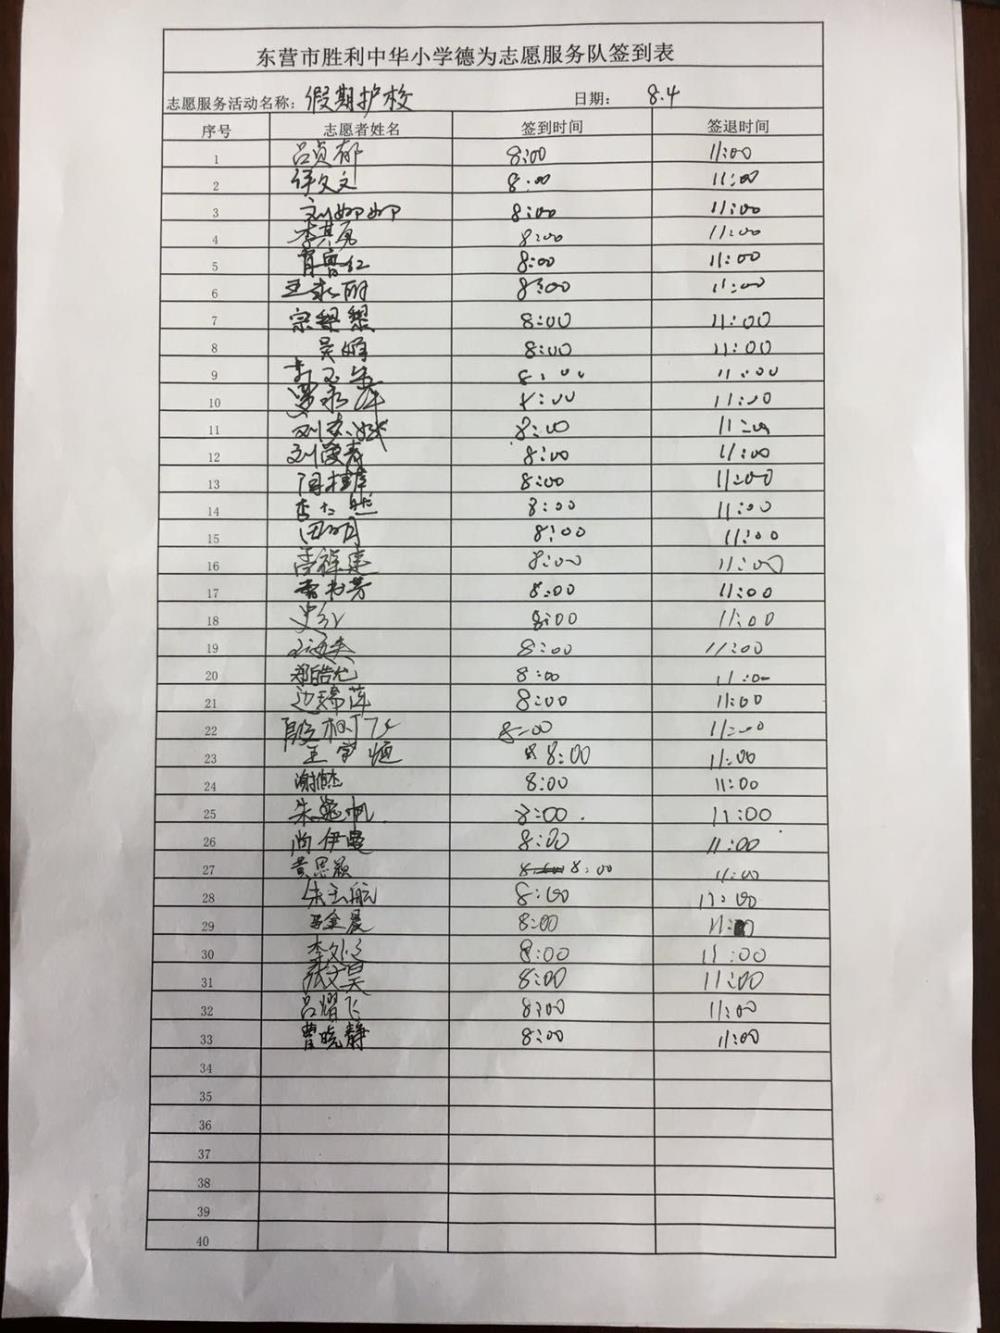 东营市胜利中华小学德为志愿服务队签到表
志愿服务活动名称：假期护校 日期： 8.4
序号 志愿者姓名 签到时间 签退时间
1 吕贞郁 8:00 11:00
2 许文文 8:00 11:00
3 刘娜娜 8:00 11:00
4 李其勇 8:00 11:00
5 肖鲁红 8:00 11:00
6 王永丽 8:00 11:00
7 宗翠翠 8:00 11:00
8 吴婷 8:00 11:00
9 8:00 11:00
10 8:00 11:00
11 8:00 11:00
12 8:00 11:00
13 8:00 11:00
14 8:00 11:00
15 田明 8:00 11:00
16 李祥建 8:00 11:00
17 8:00 11:00
18 8:00 11:00
19 8:00 11:00
20 郑皓允 8:00 11:00
21 边锦莲 8:00 11:00
22 8:00 11:00
23 王学恒 8:00 11:00
24 8:00 11:00
25 朱逸帆 8:00 11:00
26 尚伊曼 8:00 11:00
27 黄思颖 8:00 11:00
28 朱玉航 8:00 11:00
29 8:00 11:00
30 8:00 11:00
31 张文昊 8:00 11:00
32 吕耀飞 8:00 11:00
33 曹晓静 8:00 11:00
34
35
36
37
38
39
40